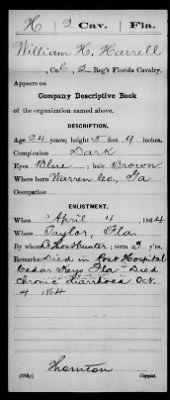 H 2 Cav. Fla.
William H. Harrell
, Co. G, 2 Reg't Florida Cavalry.
Appears on
Company Descriptive Book
of the organization named above.
DESCRIPTION.
Age 24 years; height 5 feet 9 inches.
Complexion Dark
Eyes Blue; hair Brown
Where born Warren Co., Ga
Occupation
ENLISTMENT.
When April 4, 1864
Where Taylor, Fla
By whom Hunter; term 3 y'rs.
Remarks: Died in Post Hospital
Cedar Keys Fla - Died
Chronic diarrhoea Oct.
4 1864
Thornton
Copyist.